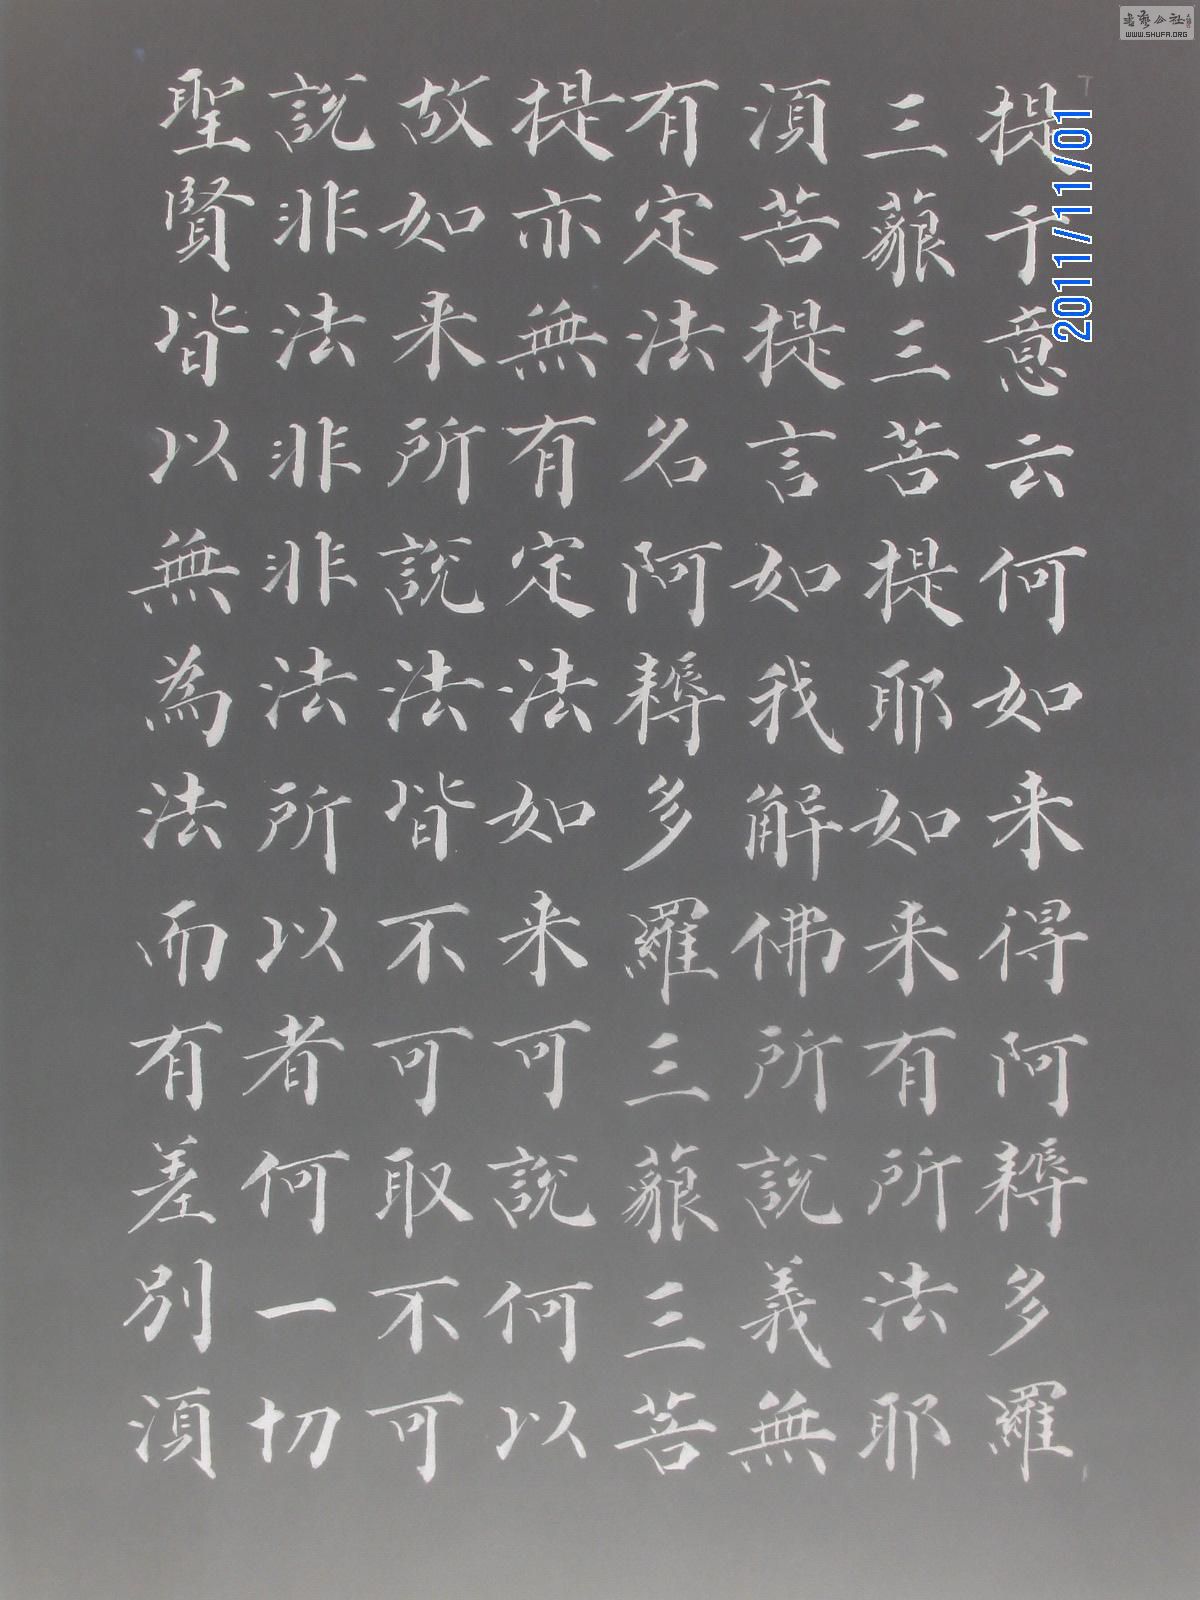 提于意云何如来得阿耨多羅
三藐三菩提耶如来有所法耶
湏菩提言如我解佛所說義無
有定法名阿耨多羅三藐三菩
提亦無有定法如来可說何以
故如来所說法皆不可取不可
說非法非非法所以者何一切
聖賢皆以無為法而有差別湏
2011/11/01
书艺公社
WWW.SHUFA.ORG